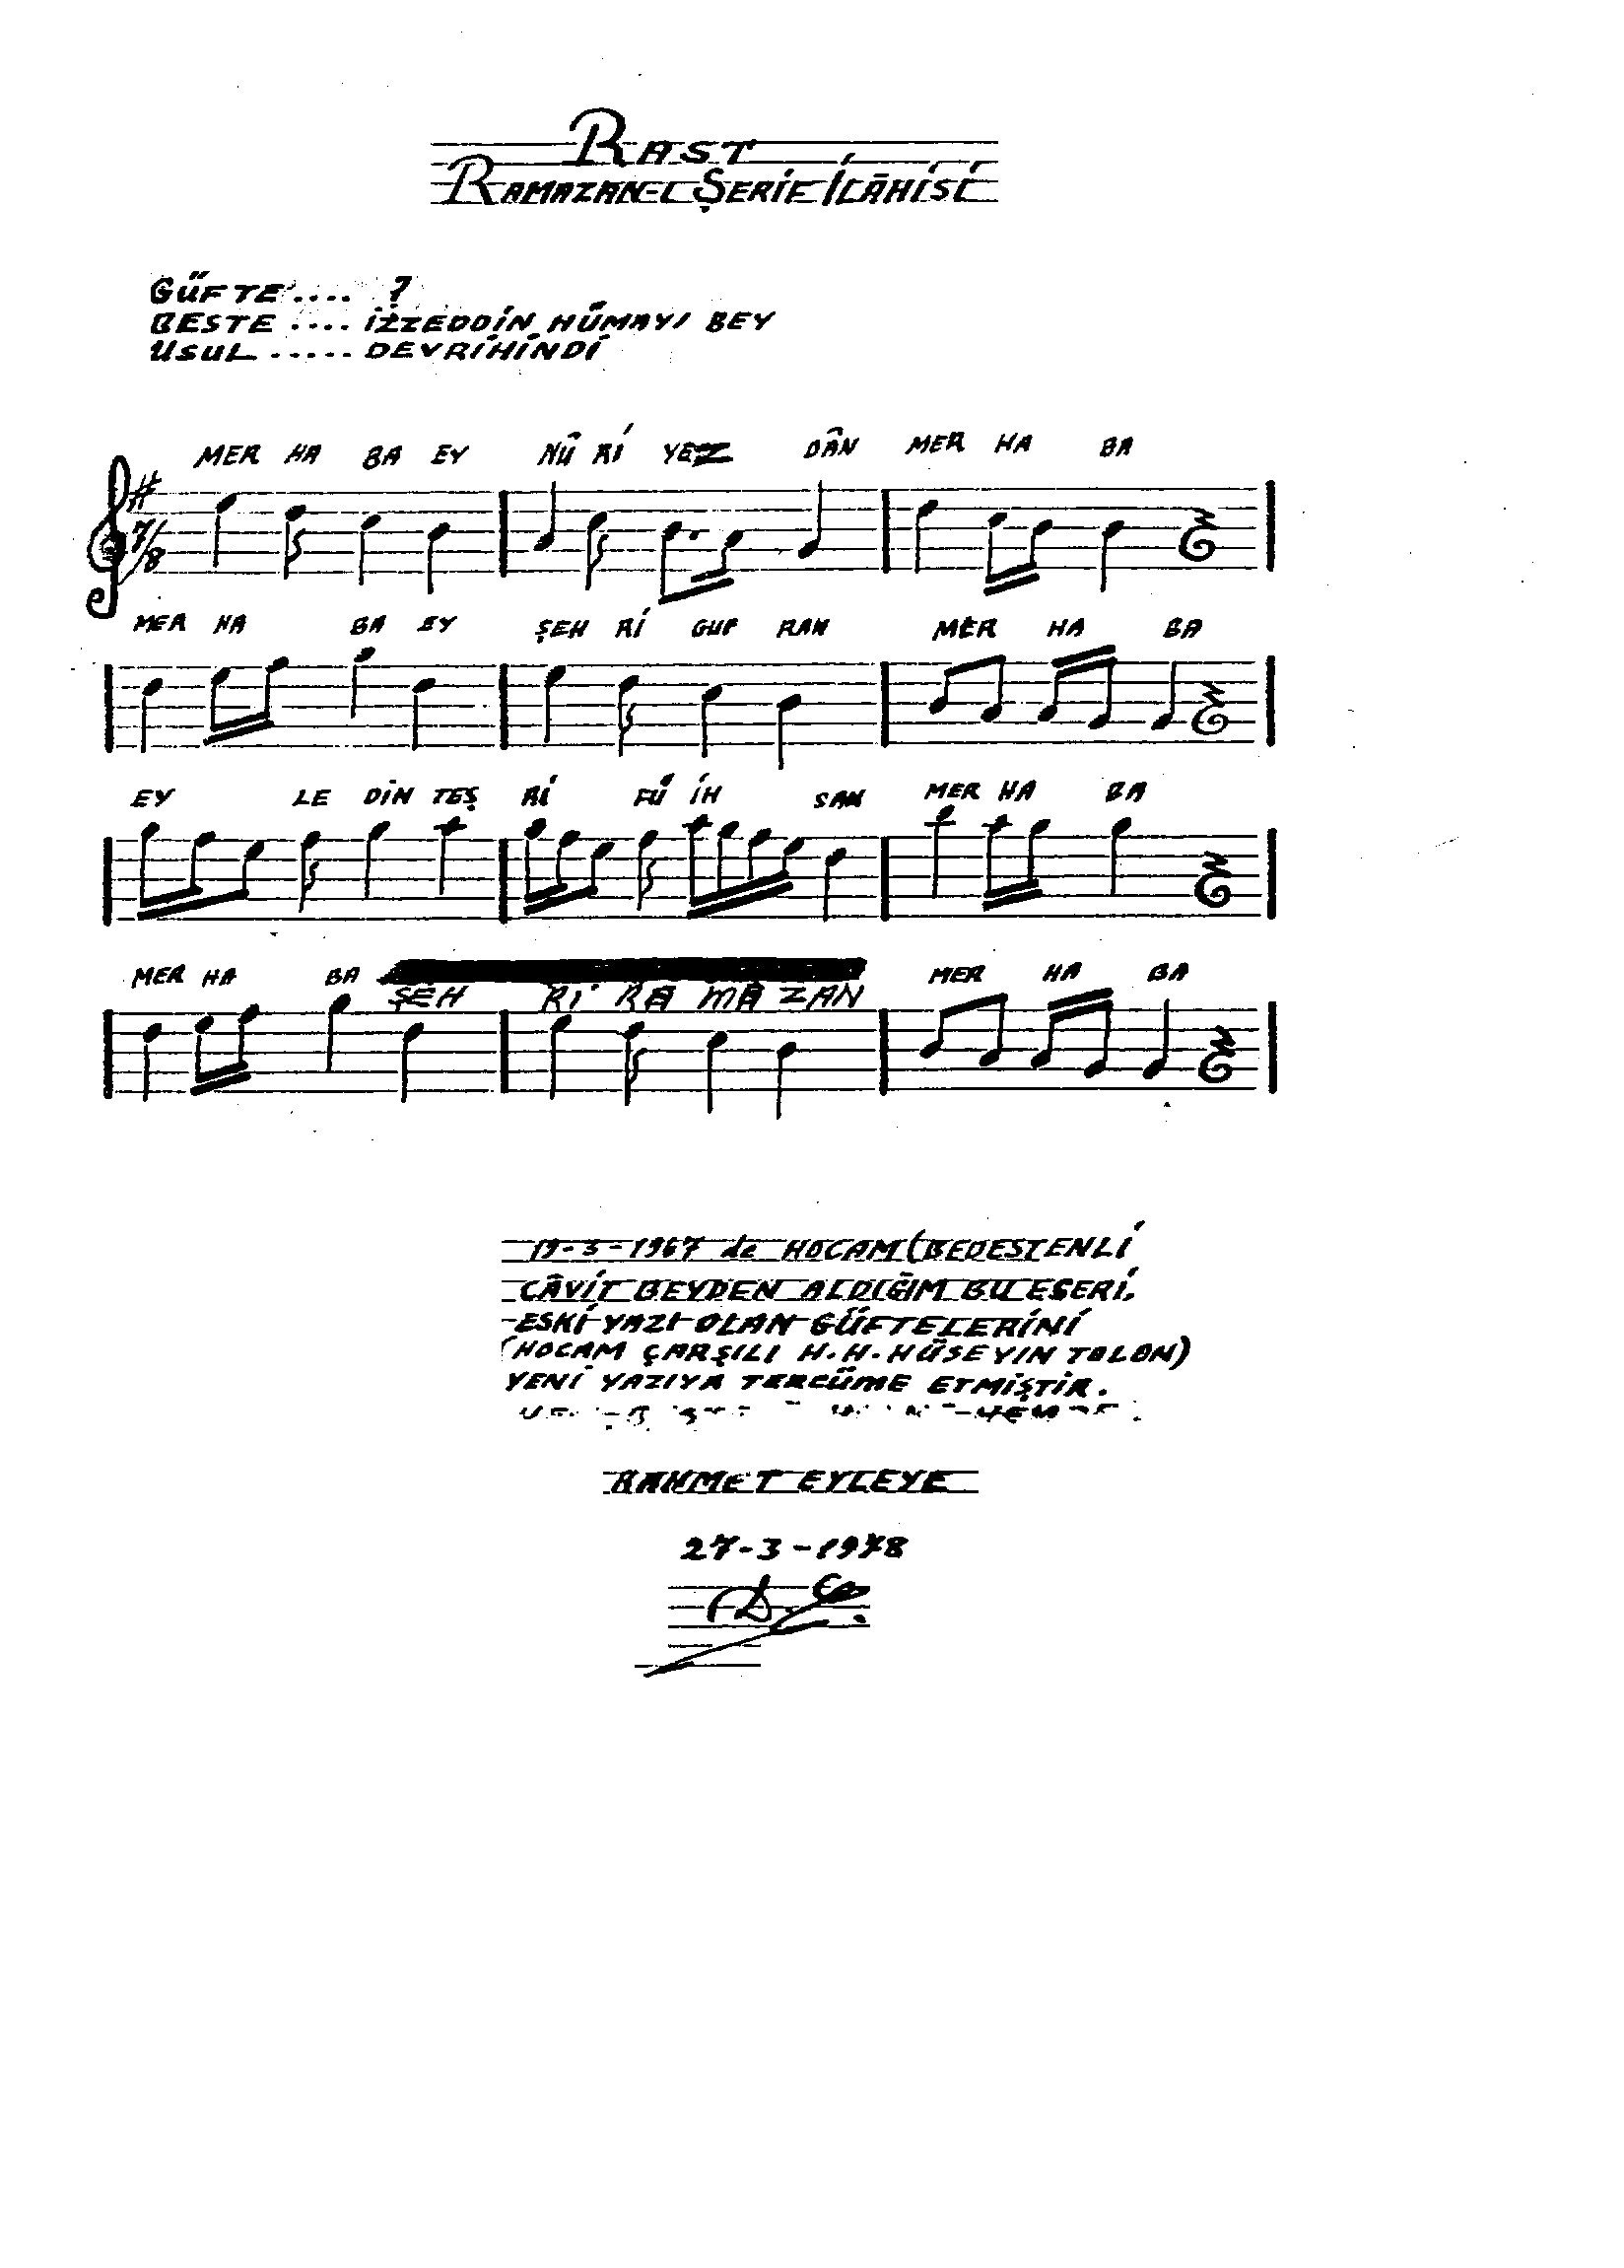 RAST
RAMAZAN-L ŞERİF İLÂHİSİ
GÜFTE.... ?
BESTE .... İZZEDDİN HÜMAYI BEY
USUL ..... DEVRİHİNDİ
MER HA BA EY NÛ Rİ YEZ DÂN MER HA BA
7/8
MER HA BA EY ŞEH Rİ GUF RAN MER HA BA
EY LE DİN TEŞ Rİ FÜ İH SAN MER HA BA
MER HA BA MER HA BA
ŞEH Rİ RA MA ZAN
19-3-1967 de HOCAM (BEDESTENLİ
CÂVİT BEYDEN ALDIĞIM BU ESERİ,
ESKİ YAZI OLAN GÜFTELERİNİ
(HOCAM ÇARŞILI H.H.HÜSEYIN TOLON)
YENİ YAZIYA TERCÜME ETMİŞTİR.
RAHMET EYLEYE
27-3-1978